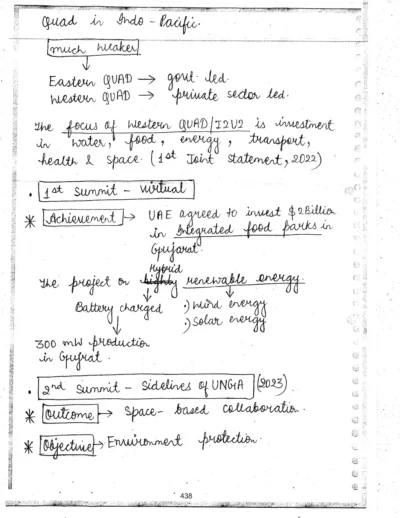 Quad in Indo-Pacific.
much weaker
↓
Eastern QUAD → govt. led.
Western QUAD → private sector led.
The focus of Western QUAD/I2U2 is investment
in water, food, energy, transport,
health & space. (1st Joint Statement, 2022)
• 1st Summit - Virtual
* Achievement → UAE agreed to invest $2 Billion
in Integrated food parks in
Gujarat.
Hybrid
The project on highly renewable energy.
Battery charged :) Wind energy
:) Solar energy
300 MW production
in Gujrat.
• 2nd Summit - Sidelines of UNGA (2023)
* Outcome → Space-based collaboration.
* Objective → Environment protection.
438